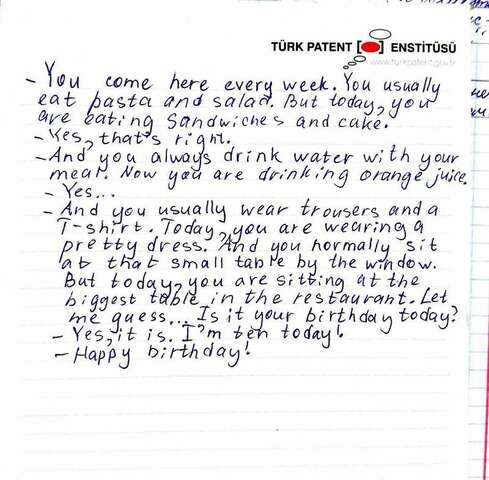 TÜRK PATENT ENSTİTÜSÜ
www.turkpatent.gov.tr
- You come here every week. You usually
eat pasta and salad. But today, you
are eating sandwiches and cake.
- Yes, that's right.
- And you always drink water with your
meal. Now you are drinking orange juice.
- Yes...
- And you usually wear trousers and a
T-shirt. Today, you are wearing a
pretty dress. And you normally sit
at that small table by the window.
But today, you are sitting at the
biggest table in the restaurant. Let
me guess... Is it your birthday today?
- Yes, it is. I'm ten today!
- Happy birthday!